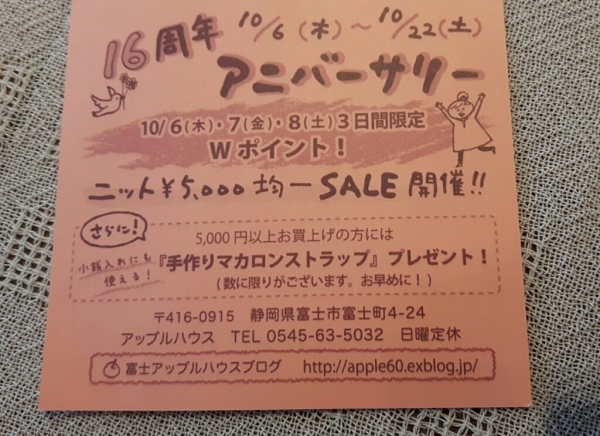 16周年 10/6(木)～10/22(土)
アニバーサリー
10/6(木)・7(金)・8(土)3日間限定
Wポイント!
ニット¥5,000均一SALE開催!!
さらに!
5,000円以上お買上げの方には
小銭入れにも使える!
『手作りマカロンストラップ』プレゼント!
(数に限りがございます。お早めに!)
〒416-0915 静岡県富士市富士町4-24
アップルハウス TEL 0545-63-5032 日曜定休
富士アップルハウスブログ http://apple60.exblog.jp/